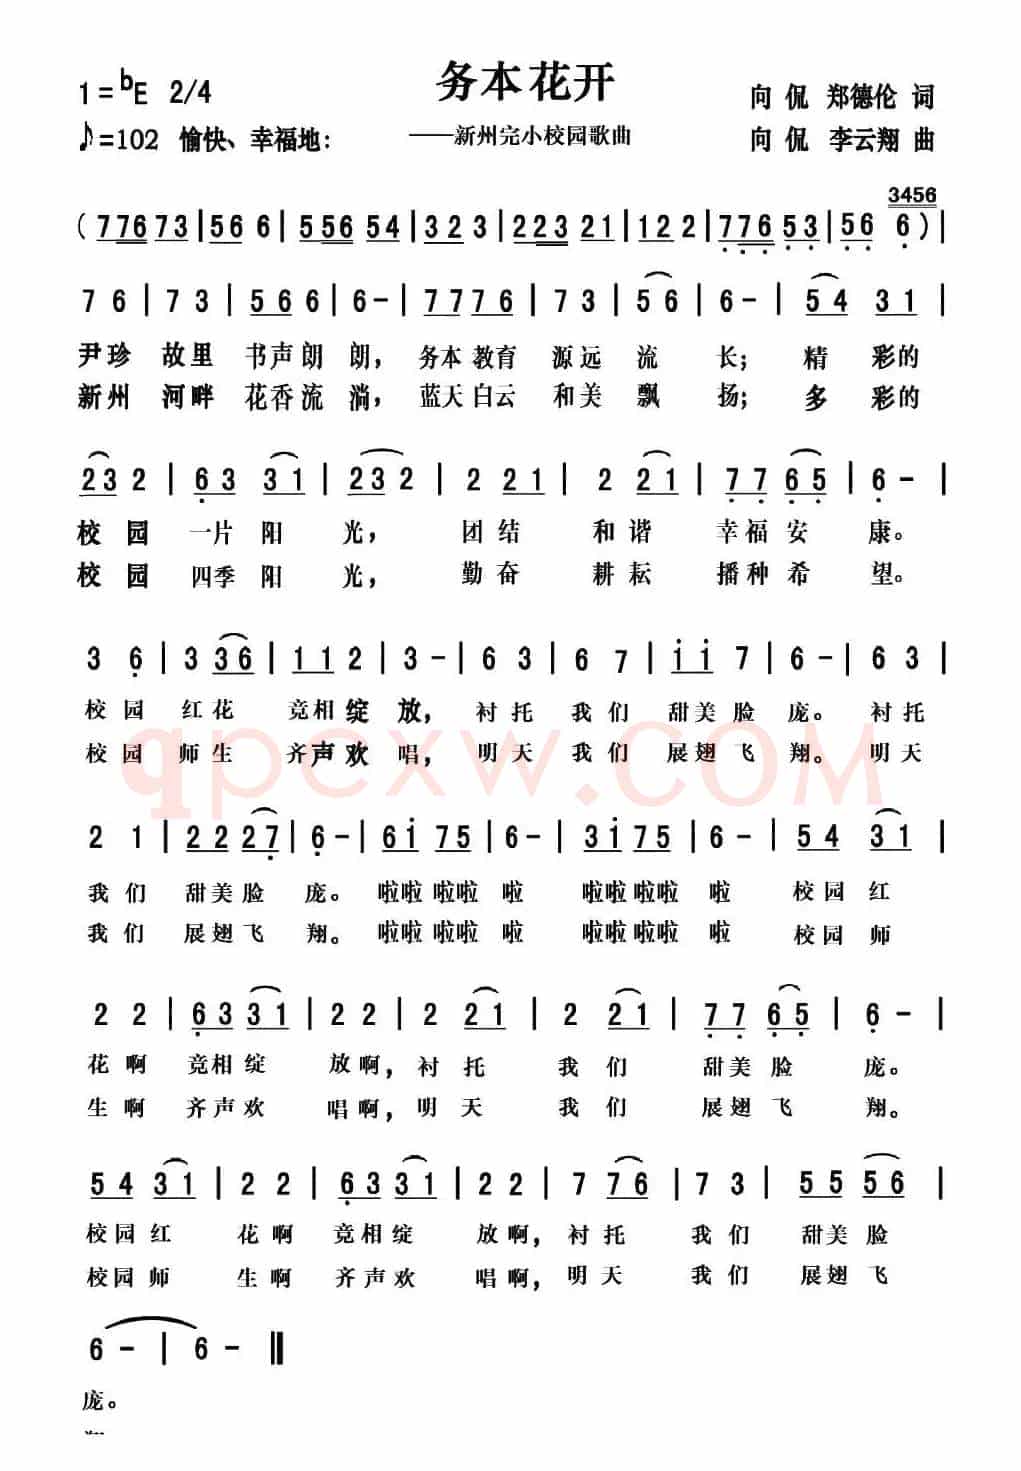 务本花开
1=♭E 2/4
向侃 郑德伦 词
♪=102 愉快、幸福地：
——新州完小校园歌曲
向侃 李云翔 曲
3456
( 77673 | 566 | 55654 | 323 | 22321 | 122 | 77653 | 56 6 ) |
7 6 | 7 3 | 566 | 6- | 7776 | 7 3 | 5 6 | 6- | 54 31 |
尹珍 故里 书声朗 朗， 务本教育 源远 流 长； 精 彩的
新州 河畔 花香流 淌， 蓝天白云 和美 飘 扬； 多 彩的
23 2 | 63 31 | 23 2 | 2 21 | 2 21 | 77 65 | 6- |
校 园 一片 阳 光， 团结 和谐 幸福 安 康。
校 园 四季 阳 光， 勤奋 耕耘 播种 希 望。
3 6 | 3 36 | 11 2 | 3- | 6 3 | 6 7 | ii 7 | 6- | 6 3 |
校园 红花 竞相绽 放， 衬托 我们 甜美脸 庞。 衬托
校园 师生 齐声欢 唱， 明天 我们 展翅飞 翔。 明天
qpcxw.COM
2 1 | 22 27 | 6- | 6i 75 | 6- | 3i 75 | 6- | 54 31 |
我们 甜美脸 庞。 啦啦 啦啦 啦 啦啦啦啦 啦 校园 红
我们 展翅飞 翔。 啦啦 啦啦 啦 啦啦啦啦 啦 校园 师
2 2 | 63 31 | 2 2 | 2 21 | 2 21 | 77 65 | 6- |
花 啊 竞相绽 放啊，衬托 我们 甜美 脸 庞。
生 啊 齐声欢 唱啊，明天 我们 展翅 飞 翔。
54 31 | 2 2 | 63 31 | 2 2 | 7 76 | 7 3 | 55 56 |
校园 红 花啊 竞相绽 放啊，衬托 我们 甜美脸
校园 师 生啊 齐声欢 唱啊，明天 我们 展翅飞
6- | 6- ‖
庞。